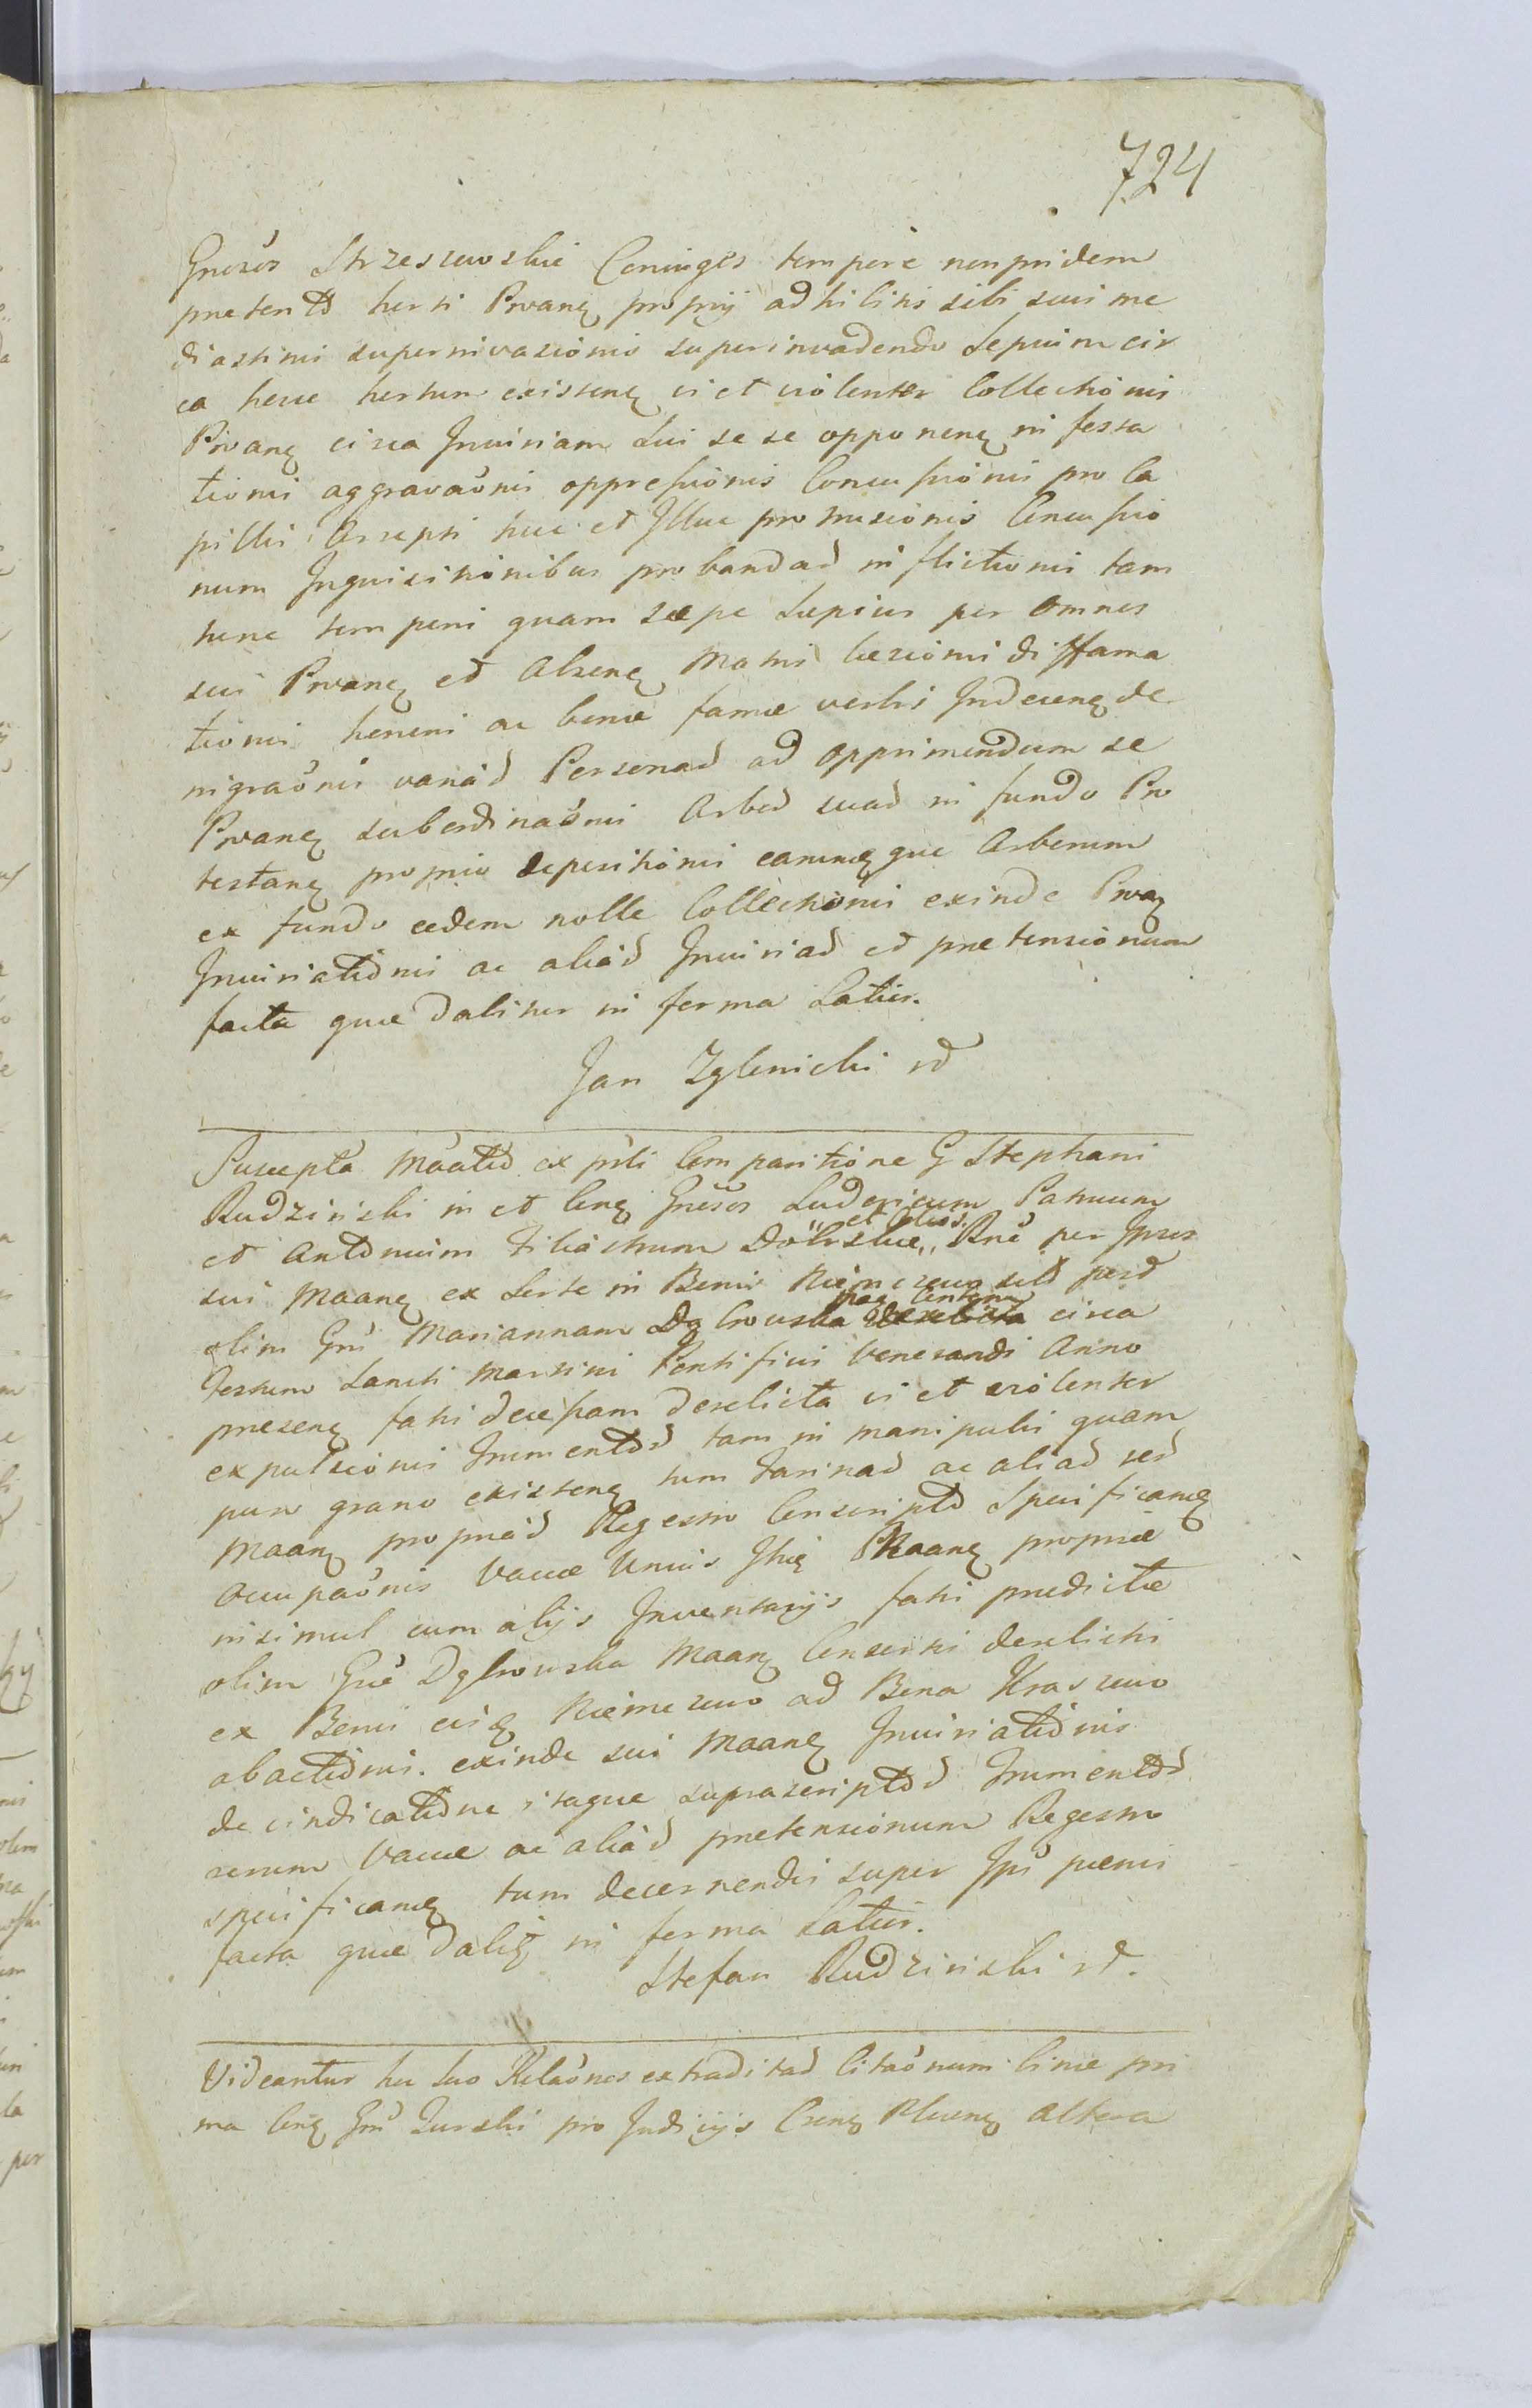 724
Gnosos Strzeszewskie Coniuges tempore non pridem
preterito horti Prvanę proprij adhiliti sibi sui me
diastini superinvasionis superinvadendo Sepium cir
ca hunc hortum existenę vi et violenter Collectionis
Prvanę circa Iniuriam Sui se se opponenę in festa
tionis aggravaonis oppressionis Concussionis pro Ca
pillis Arrepti huc et Illuc protrusionis Concussio
num Inquisitionibus probandad inflictionis tam
tunc tempori quam saepe Saepius per Omnes
sui Prvanę et Absenę Mariti laesionis diffama
tionis honoris ac bonae famae verbis Indecenę de
nigraonis variad Personad ad opprimendum se
Prvanę subordinaonis Arbod suad in fundo Pro
testanę proprio depositionis earumque Arborum
ex fundo eodem nolle Collectionis exinde Prvaę
Iniuriationis ac aliad Iniuriad et pretensionum
facta quae daliter in forma Latior.
Jan Zglenicki
Suscepta Maatio ex prsti Comparitione G Stephani
Rudzinski in et Conę Gnosos Ludovicum Patruum
et Antonium Filiastrum Dobrskie Bne per Ipsos
et alios
sui Maanę ex Sorte in Bonis Niemczewo
olim Gn Mariannam Dąbrowska circa
Festum Sancti Martini Pontificis Venerandi Anno
presenę fati decessam derelicta vi et violenter
expulsionis frumentod tam in manipulis quam
puro grano existenę tum Farinad ac aliad red
Maanę propriad Regestro Conscriptd Specificanę
Occupaonis Vaccae Unius Maanę propriae
insimul cum alijs Inventarijs fati praedictae
olim Gne Dąbrowska Maanę Consorti derelicti
ex Bonis eisę Niemczewo ad Bona Kraszewo
abactionis. exinde sui Maanę Iniuriationis
de vindicatione itaque suprascriptod frumentod
rerum Vaccae ac aliad pretensionum Regestro
specificanę tum decernendis super Ips poenis
facta quae dalię in forma Latior.
Stefan Rudzinski
Videantur hu suo Relaones extraditad Citaonum binae pri
ma Conę Gn Zurski pro Judicijs Csenę Plocenę altera